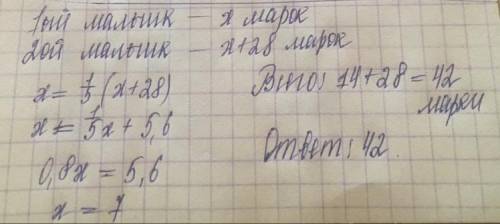 1ый малышк — x марок
2ой малышк — x+28 марок
x = 1/5 (x+28)
x = 1/5x + 5,6
0,8x = 5,6
x = 7
Всего: 14+28 = 42
марки
Ответ: 42.